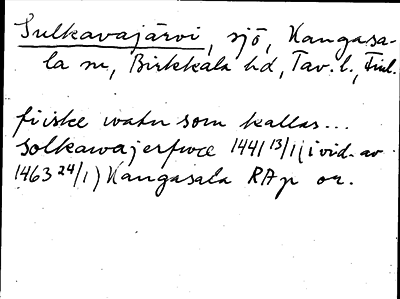 Sulkavajärvi, sjö, Kangasa-
la sn, Birkkala hd, Tav. l., Finl.
fiiske watn som kallas...
solkawajerfwe 1441 13/1 (i vid. av
1463 24/1) Kangasala RAp or.